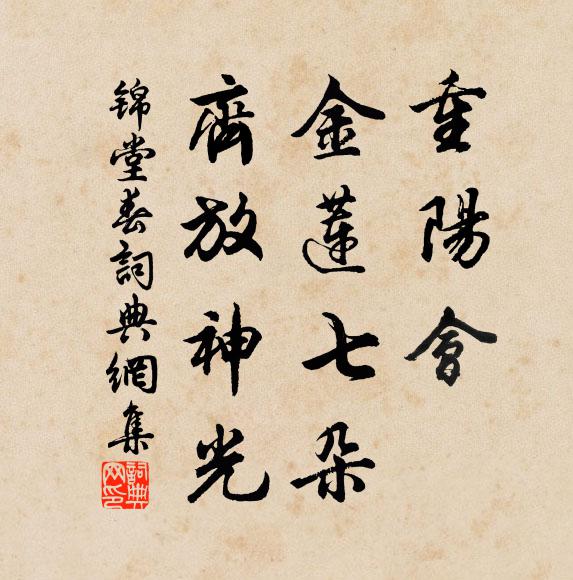 重陽會
金蓮七朵
齊放神光
锦堂春詞典網集
詞典网印